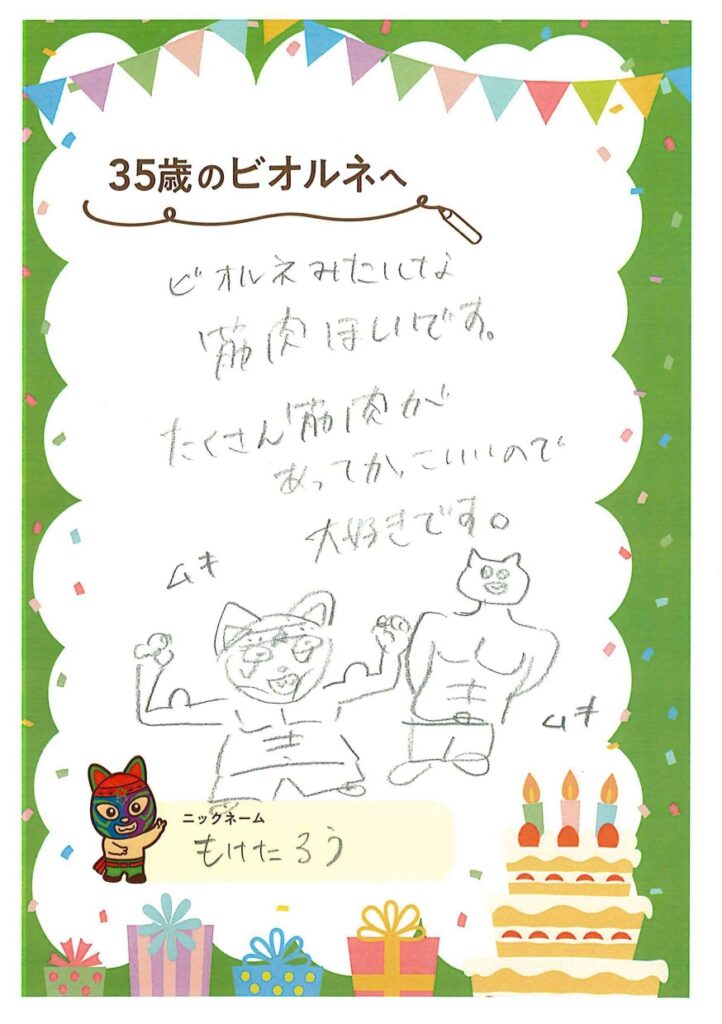 35歳のビオルネへ
ビオルネみたいな
筋肉ほしいです。
たくさん筋肉が
あってかっこいいので
大好きです。
ムキ
ムキ
ニックネーム
もけたろう